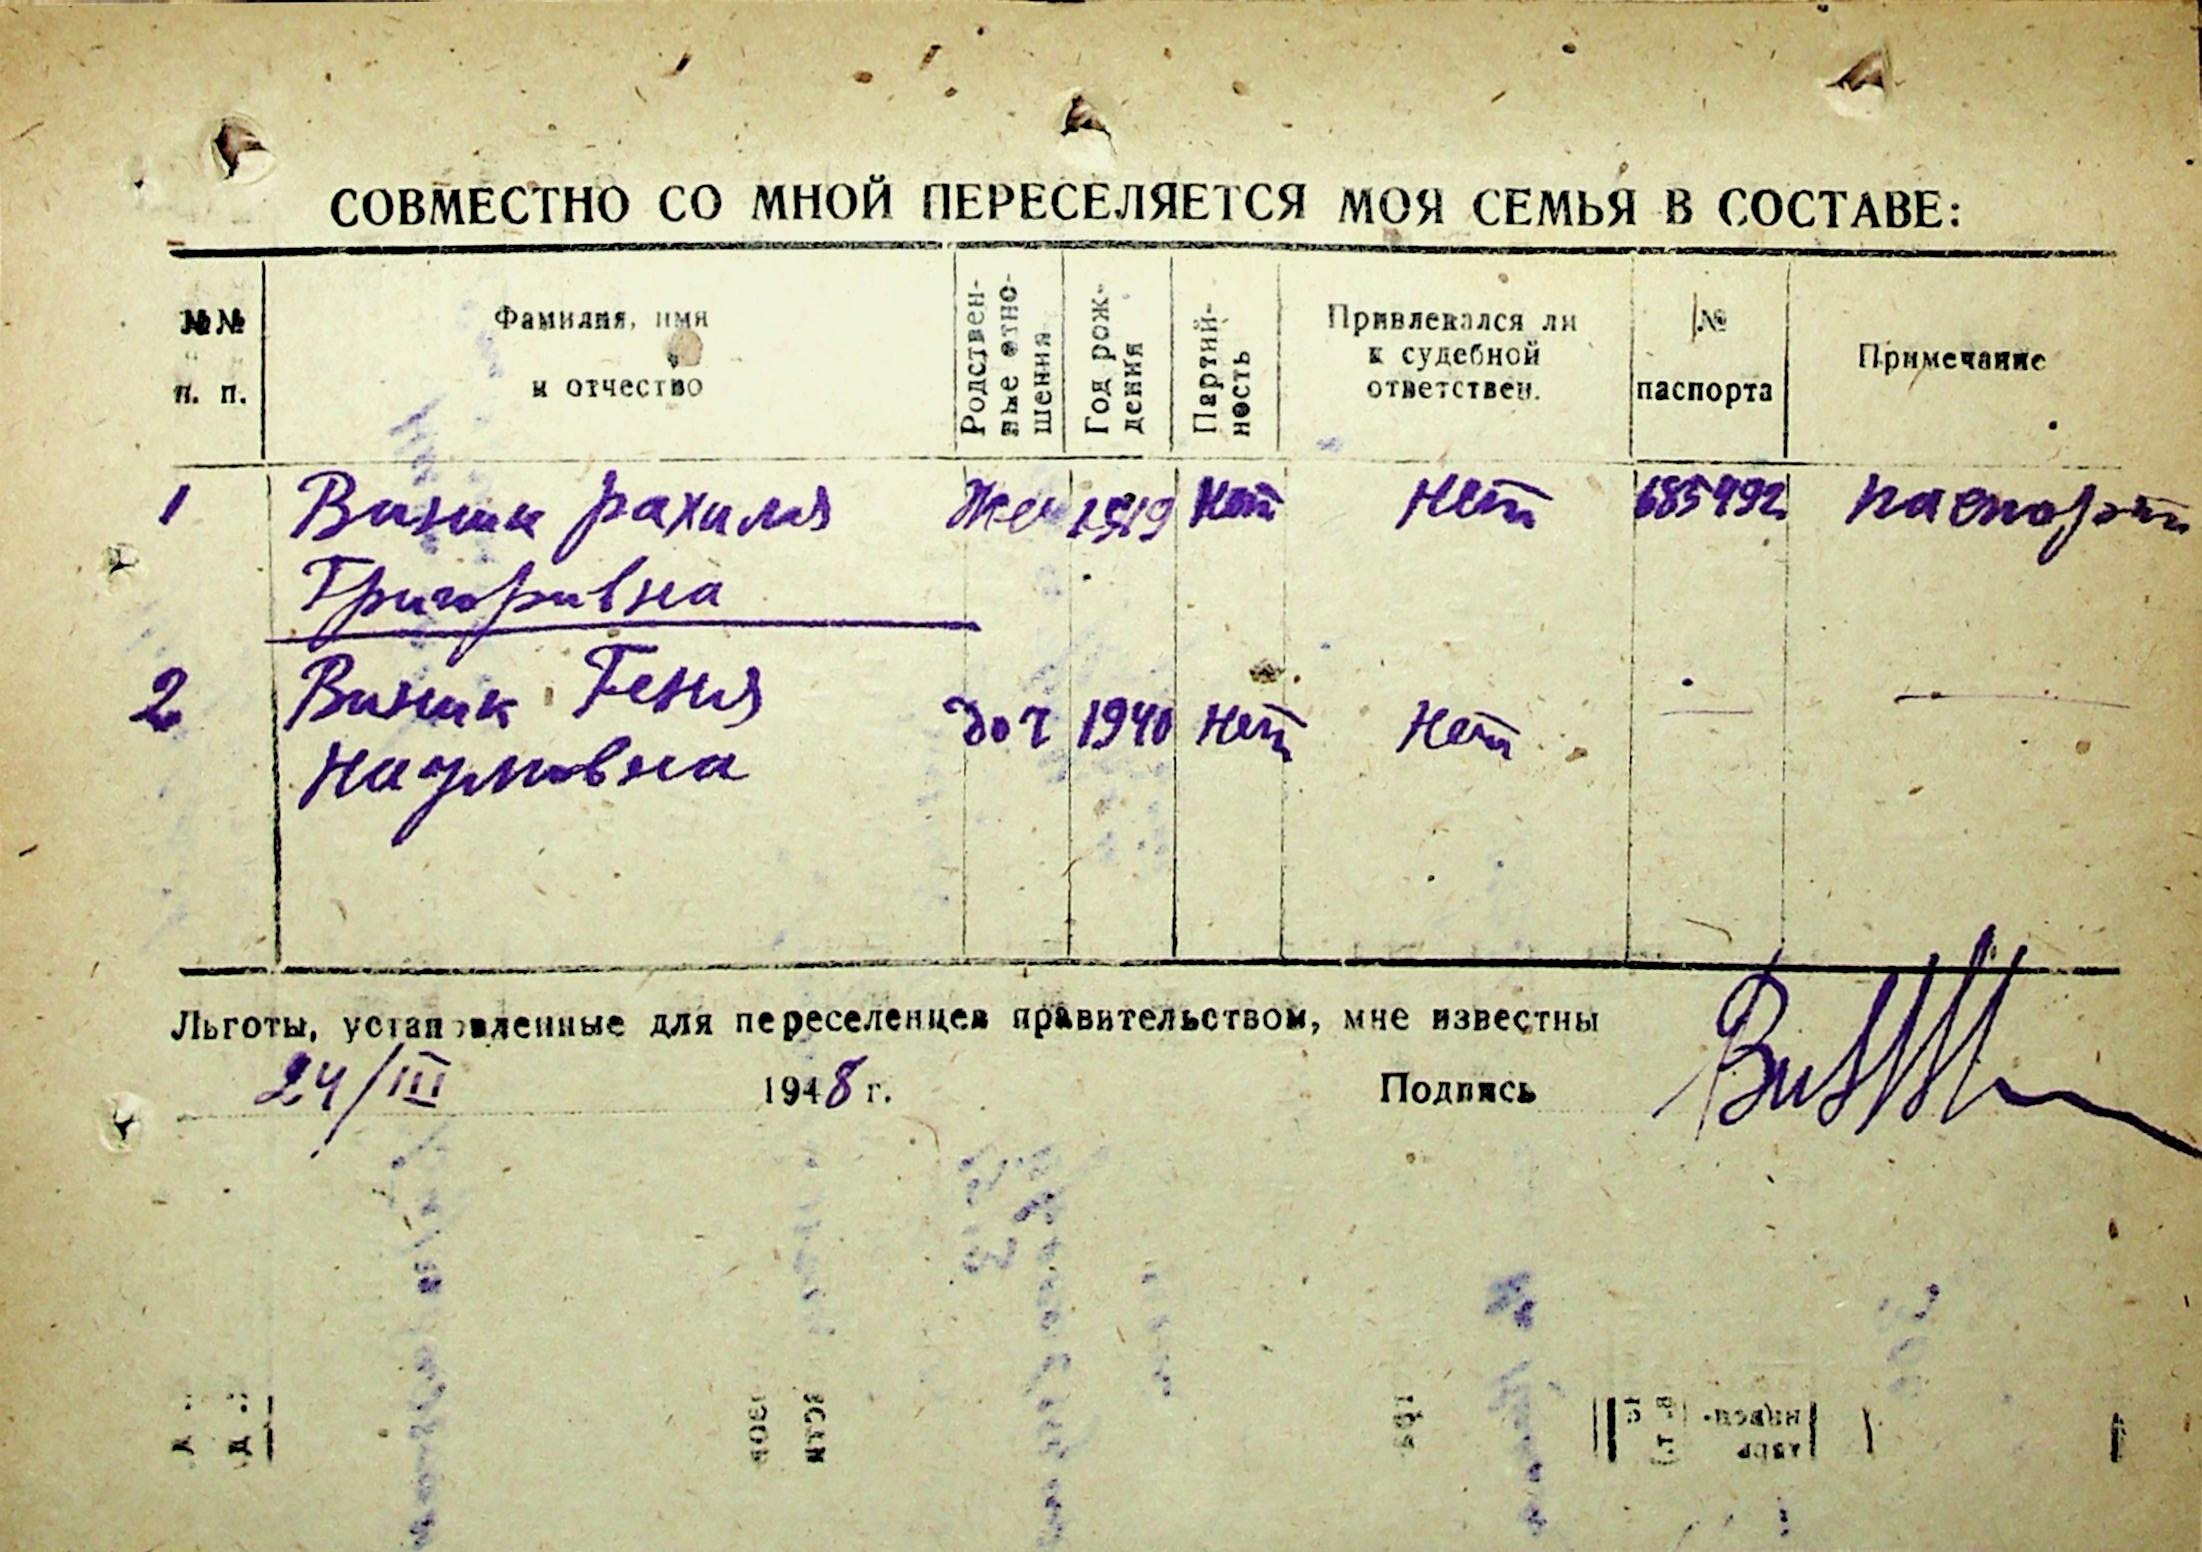 СОВМЕСТНО СО МНОЙ ПЕРЕСЕЛЯЕТСЯ МОЯ СЕМЬЯ В СОСТАВЕ:
№№ п. п.
Фамилия, имя и отчество
Родственные отношения
Год рождения
Партийность
Привлекался ли к судебной ответствен.
№ паспорта
Примечание
1 Виник Рахиля Жен 1919 Нет Нет 685492 паспорт
Григоривна
2 Виник Геня
доч 1940 Нет Нет —
Наумовна
Льготы, установленные для переселенцев правительством, мне известны
24/III 1948 г. Подпись